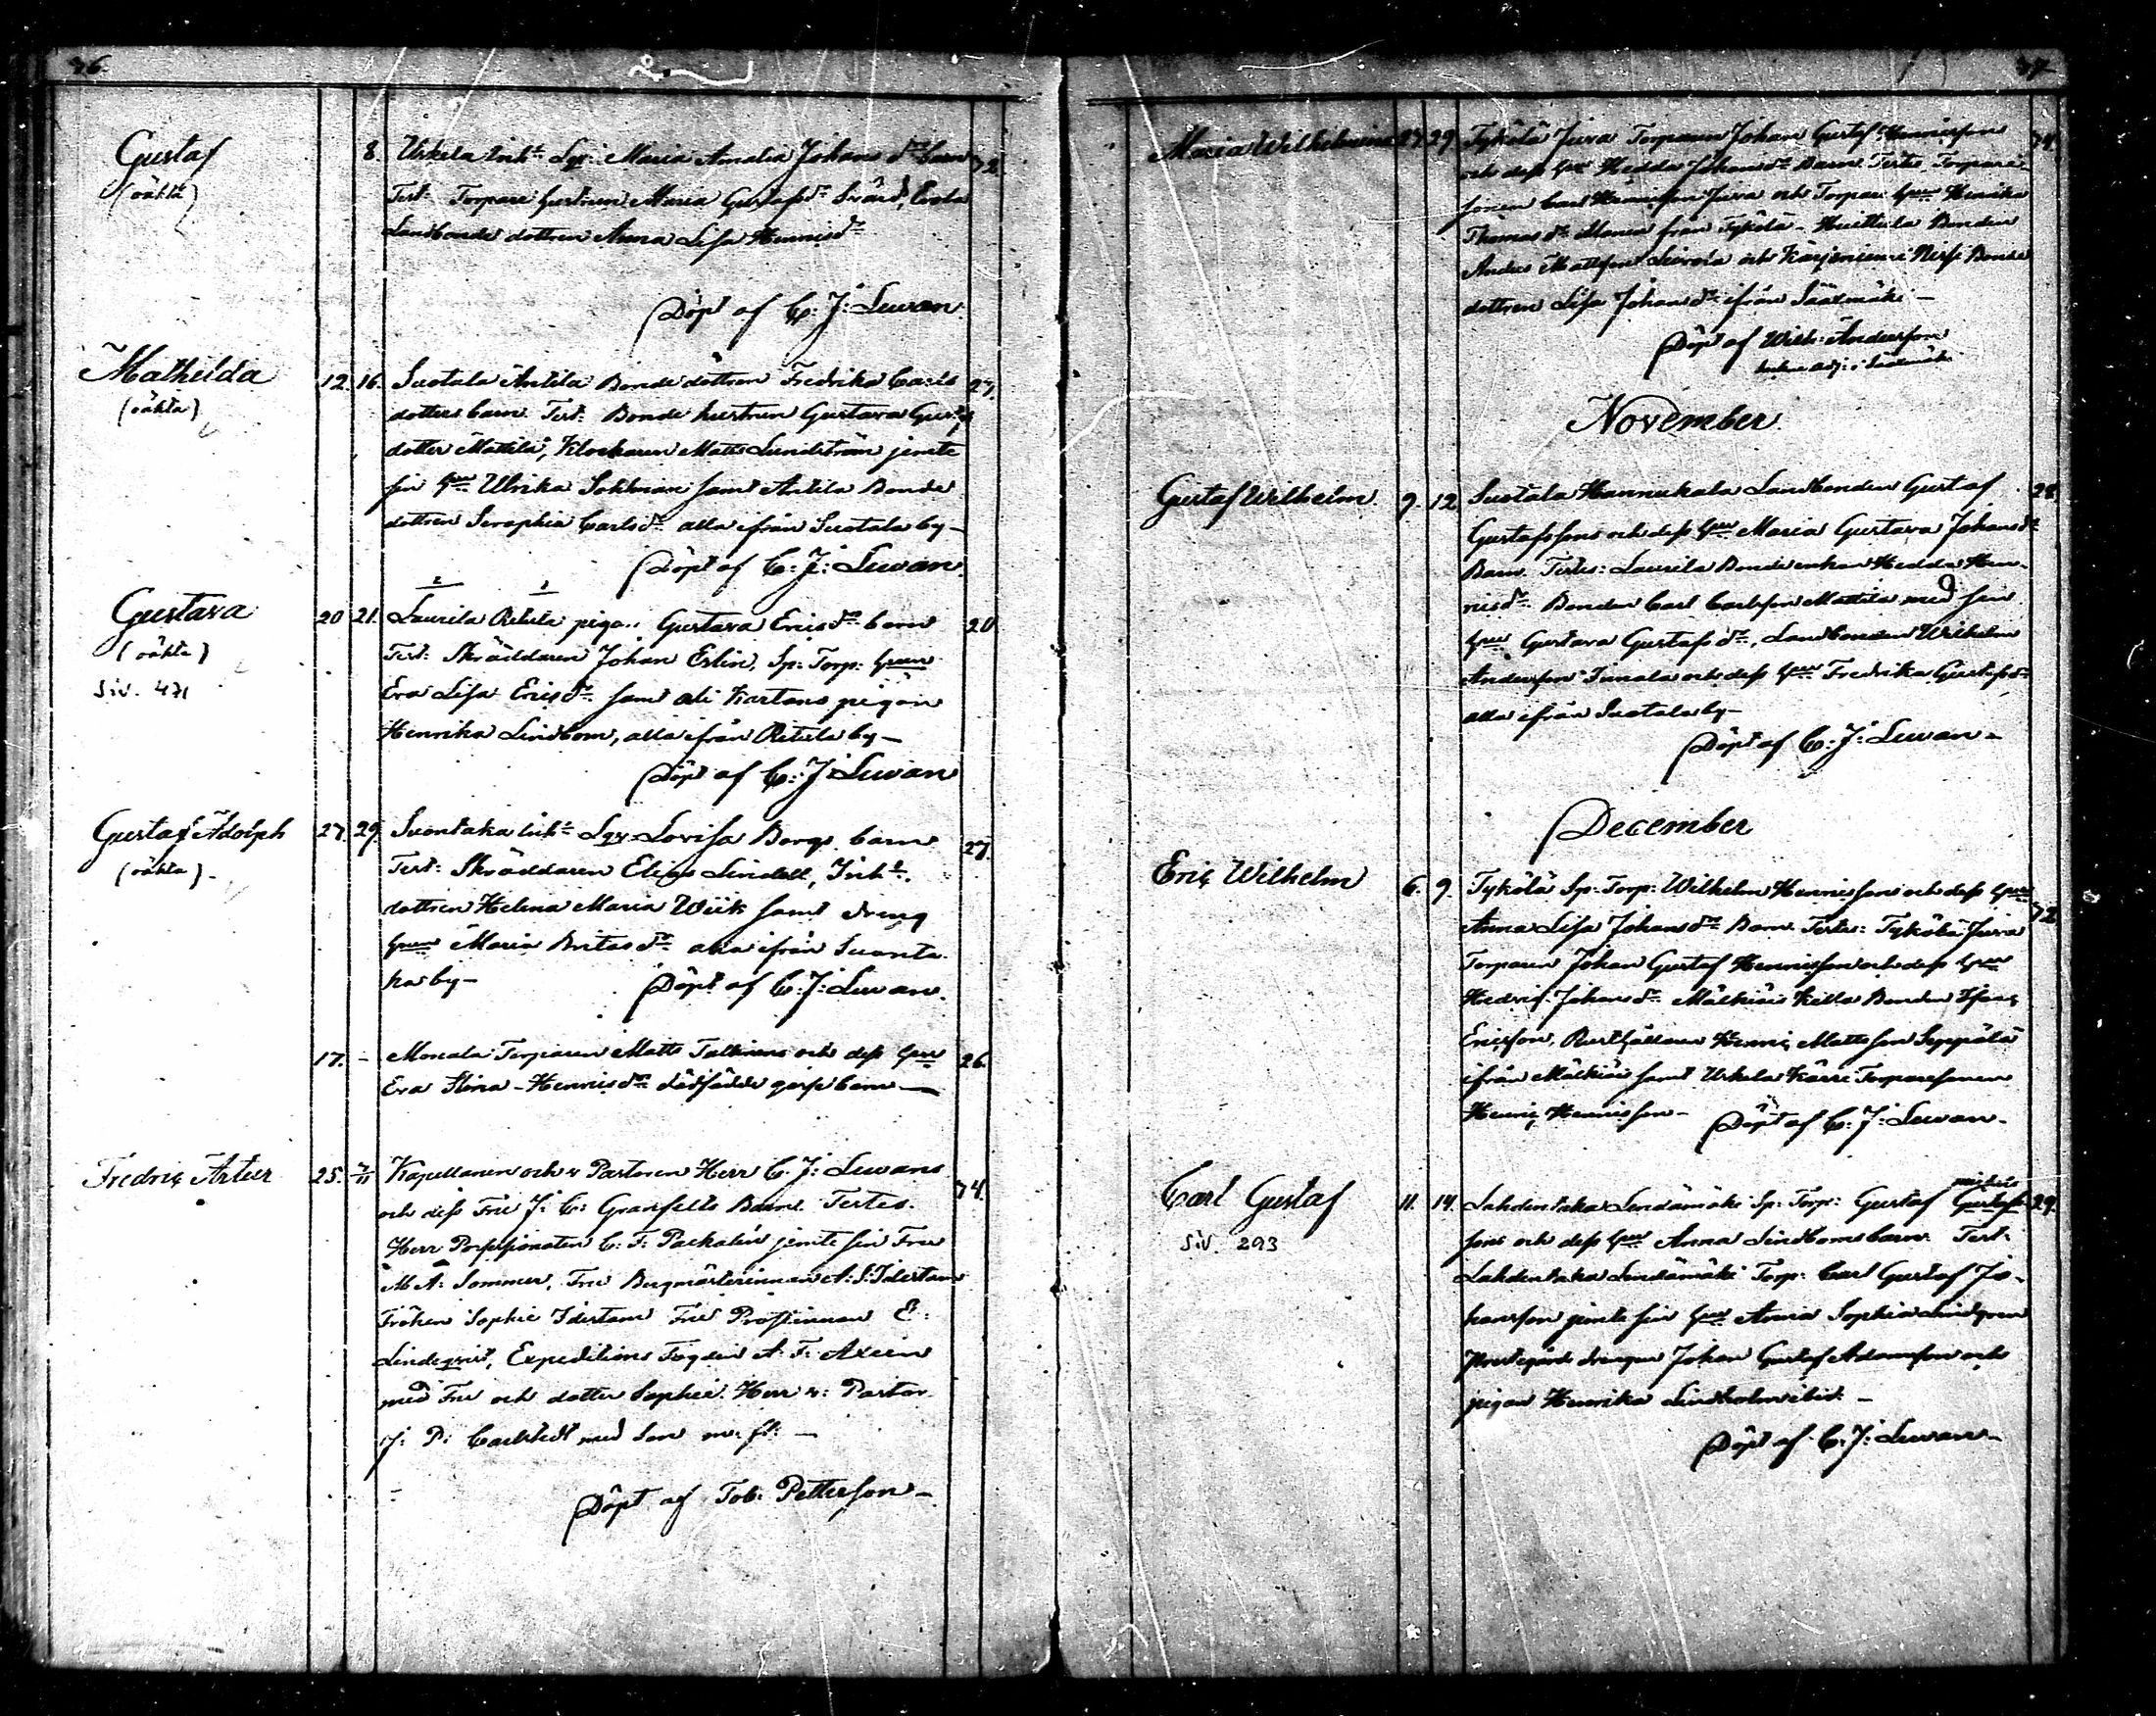 36.
Gustaf 8. Urkela Inh: Lgr: Maria Amalia Johans dr barn 32.
(oäkta) Test: Torpare hustrun Maria Gustafs dr Svärd, Evola
Landbonde dottren Anna Lisa Henrics dr
Döpt af C: J: Lewan.
Mathilda 12. 16. Suotala Antila Bonde dottren Fredrika Carls 27.
(oäkta) dotters barn. Test: Bonde hustrun Gustava Gustafs
dotter Mattila, Klockaren Matts Lundström jemte
sin hru Ulrika Sohlman samt Antila Bonde
dottren Seraphia Carls dr alla ifrån Suotala by –
Döpt af C: J: Lewan.
Gustava 20 21. Laurila Retula piga Gustava Erics dr barn 20
(oäkta) Test: Skräddaren Johan Eslin, Sp: Torp: hrun
siv. 471 Eva Lisa Erics dr samt Ali Kartano pigan
Henrika Lindbom, alla ifrån Retula by –
Döpt af C: J: Lewan
Gustaf Adolph 27. 29. Suontaka Inh: Lgr: Lovisa Borgs barn 27.
(oäkta) – Test: Skräddaren Elias Lindell, Inh:
dottren Helena Maria Wiik samt dreng
hrun Maria Brita dr alla ifrån Suonta
ka by – Döpt af C: J: Lewan.
17. – Monala Torparen Matts Tallrens och dess hru 26.
Eva Stina Henrics dr dödfödde gosse barn –
Fredric Artur 25. 2/11 Kapellanen och v Pastoren Herr C. J: Lewans 34.
och dess Fru J: C: Granfelts Barn. Testes.
Herr Possessionaten C: F: Packalén jemte sin Fru
M A: Sommer, Fru Bergmästerinnan A: S: Idestam
Fröken Sophie Idestam Fru Prostinnan E:
Lindeqvist, Expeditions Fogden A. F: Axeen
med Fru och dotter Sophie. Herr v: Pastor
J: P: Carlstedt med Son m: fl: –
Döpt af Tob: Petterson –
37
Maria Wilhelmina 27 29 Tykölä Juva Torparen Johan Gustaf Henricsson 34.
och dess hru Hedda Johans dr Barn. Testes, Torpare
sonen Carl Henricsson Juva och Torpare hrun Henrika
Thomas dr från Tykölä – Huittula Bonden
Anders Mattsson och Bonde
dottren Lisa Johans dr ifrån Sääxmäki –
Döpt af Wilh: Andersson
adj: i Sääxmäki
November
Gustaf Wilhelm. 9. 12 Suotala Hannukala Landbonden Gustaf 28.
Gustafssons och dess hru Maria Gustava Johans dr
Barn. Testes: Laurila Bonde enkan Hedda Hen-
rics dr Bonden Carl Carlsson Mattila med sin
hru Gustava Gustafs dr, Landbonden Wilhelm
Andersson Simola och dess hru Fredrika Gustafs dr
alla ifrån Suotala by –
Döpt af C: J: Lewan –
December
Eric Wilhelm 6. 9. Tykölä Sp: Torp: Wilhelm Henricssons och dess hru 32
Anna Lisa Johans dr Barn. Testes: Tykölä Juva
Torparen Johan Gustaf Henricsson och dess hru
Hedvig Johans dr Mälkiäis Killa Bonden Isac
Ericsson, Rusthållaren Henric Mattsson Seppälä
ifrån Mälkiäis samt Urkela Kärri Torparesonen
Henric Henricsson – Döpt af C: J: Lewan –
Carl Gustaf 11. 14. Lahdentaka Lendämäki Sp: Torp: Gustaf Gustafs 29.
siv. 293 sons och dess hru Anna Lindboms barn. Test:
Lahdentaka Lendämäki Torp: Carl Gustaf Jo-
hansson jemte sin hru Anna Sophia Lindgren
Prestegårds drengen Johan Gustaf Adamsson och
pigan Henrika Lindholm ibid: –
Döpt af C: J: Lewan –